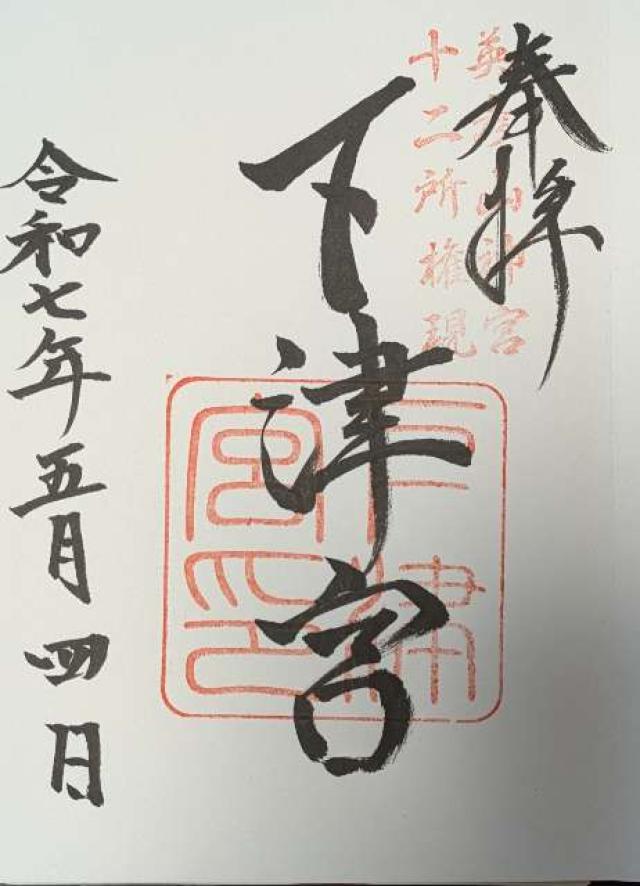 奉拝
英彦山神宮
十二所権現
下津宮
下津
宮印
令和七年五月四日